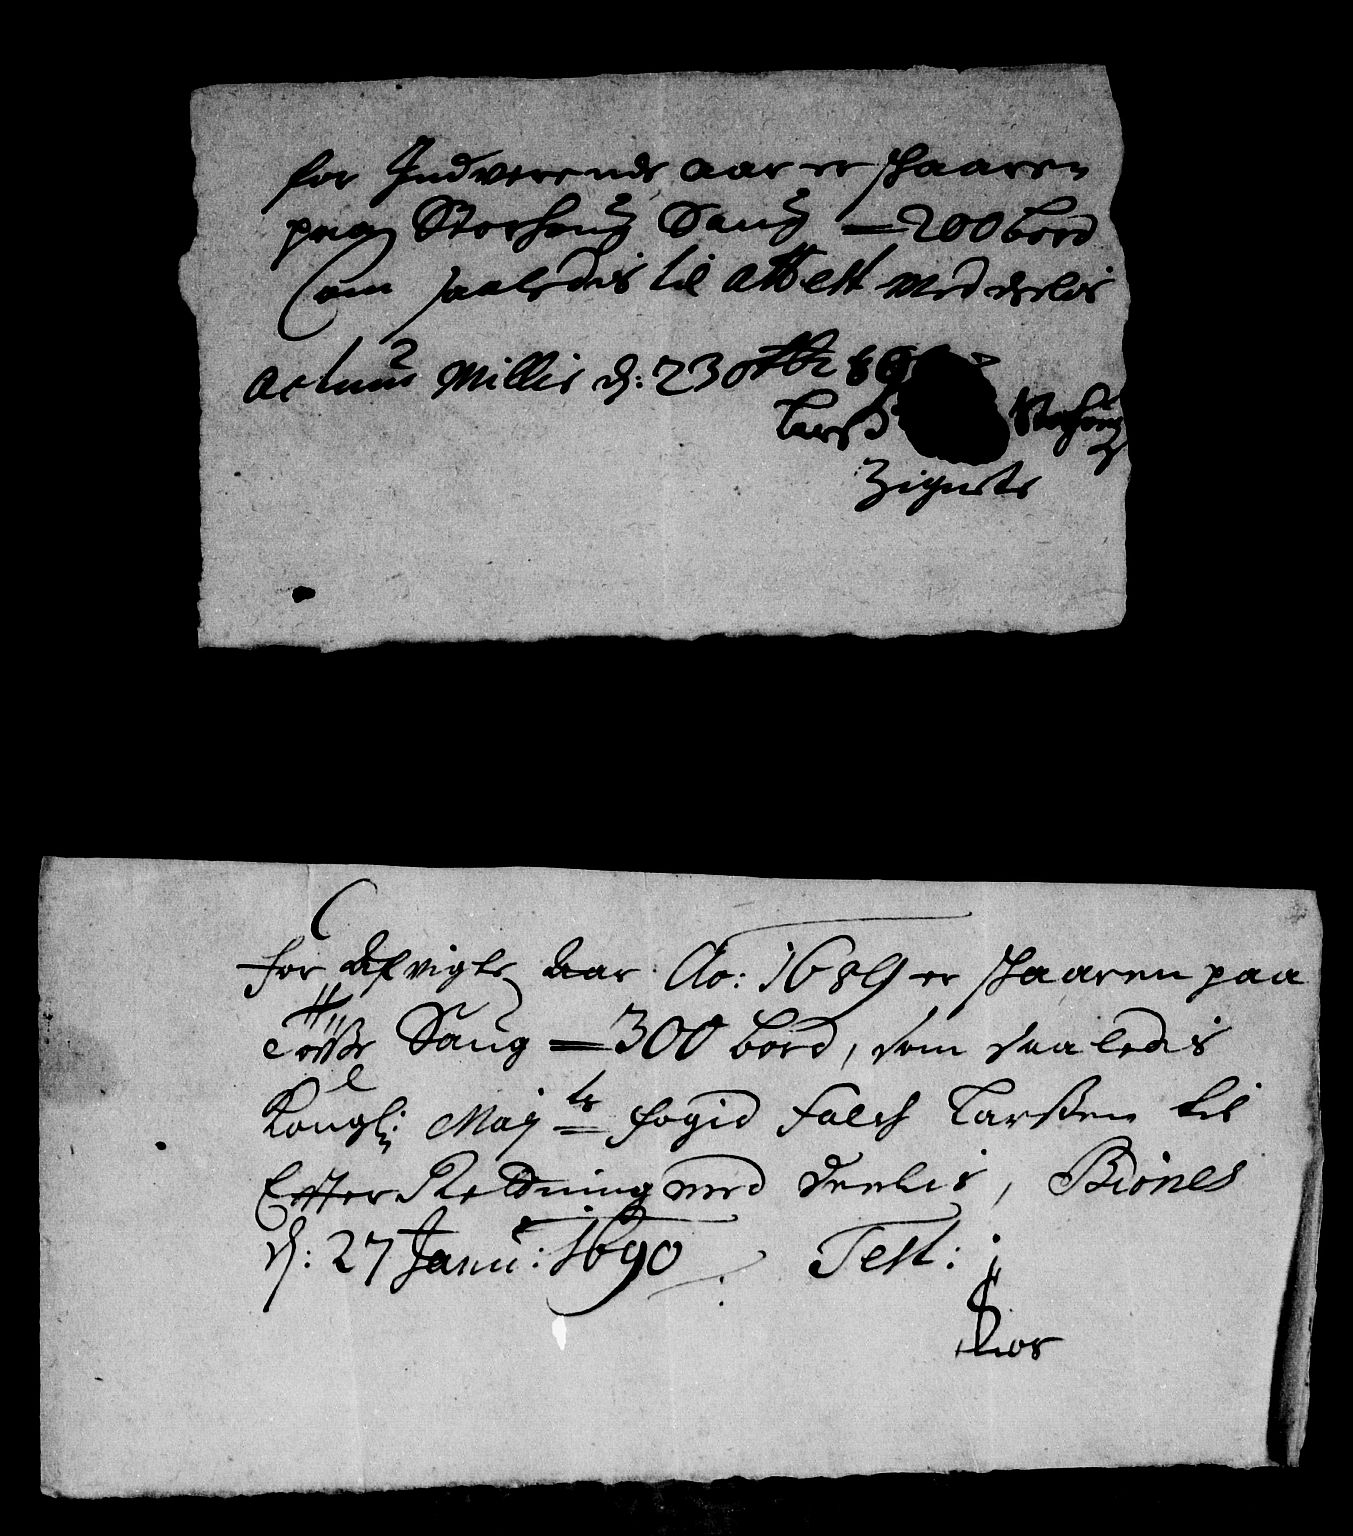 for Indverende aar er skaaren
paa Storhoug Saug = 200 bord
som saaledis til attest meddeelis
actum Millis d: 23 octbr 86
Larß Storhoug
Zignete
for afvigte Aar Ao: 1689 er skaaren paa
Saug = 300 bord, som saaledis
Kongl: Maÿ ts fogid Falch Larßen til
Efter Retning med deelis, Biönes
d: 27 Janu: 1690 Test: